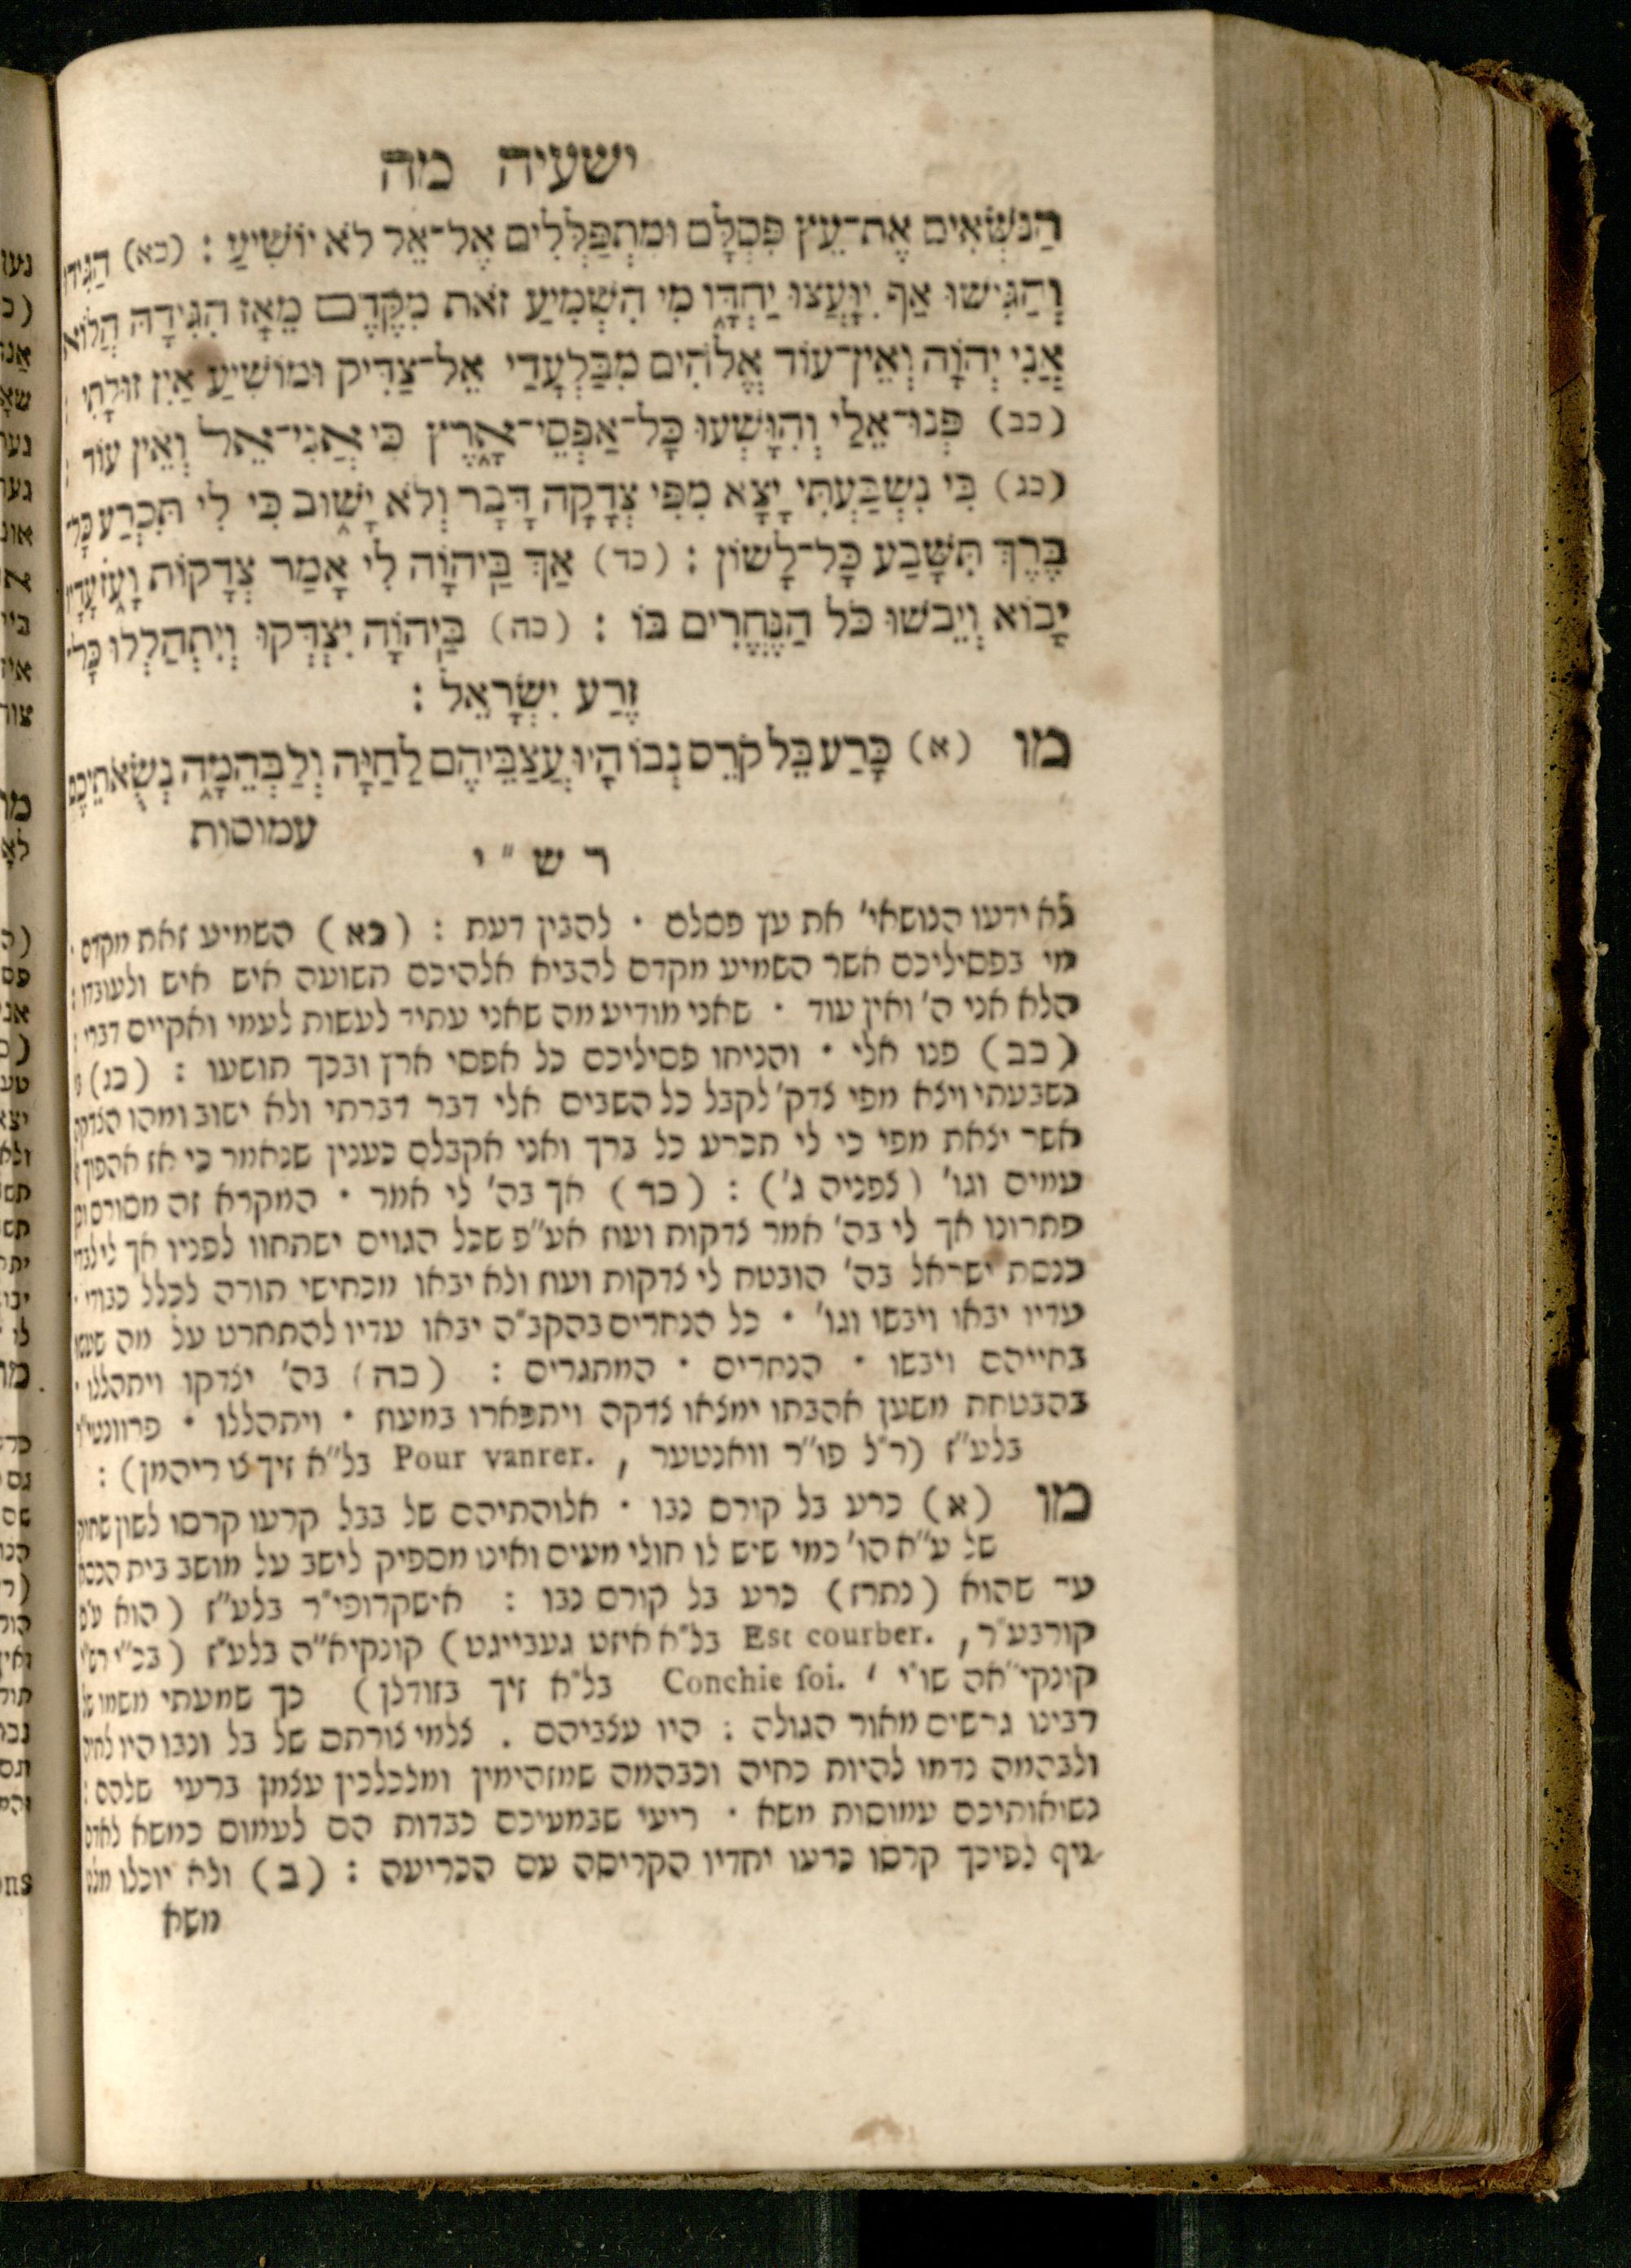 ישעיה מה
הַנֹּשְׂאִים אֶת־עֵץ פִּסְלָם וּמִתְפַּלְלִים אֶל־אֵל לֹא יוֹשִׁיעַ : (כא) הַגִּידוּ
וְהַגִּישׁוּ אַף יִוָּעֲצוּ יַחְדָּו מִי הִשְׁמִיעַ זֹאת מִקֶּדֶם מֵאָז הִגִּידָהּ הֲלוֹא
אֲנִי יְהוָֹה וְאֵין־עוֹד אֱלֹהִים מִבַּלְעָדַי אֵל־צַדִּיק וּמוֹשִׁיעַ אַיִן זוּלָתִי :
(כב) פְּנוּ־אֵלַי וְהִוָּשְׁעוּ כָּל־אַפְסֵי־אָרֶץ כִּי אֲנִי־אֵל וְאֵין עוֹד :
(כג) בִּי נִשְׁבַּעְתִּי יָצָא מִפִּי צְדָקָה דָּבָר וְלֹא יָשׁוּב כִּי לִי תִּכְרַע כָּל־
בֶּרֶךְ תִּשָּׁבַע כָּל־לָשׁוֹן : (כד) אַךְ בַּיהוָֹה לִי אָמַר צְדָקוֹת וָעֹז עָדָיו
יָבוֹא וְיֵבֹשׁוּ כֹּל הַנֶּחֱרִים בּוֹ : (כה) בַּיהוָֹה יִצְדְּקוּ וְיִתְהַלְלוּ כָּל־
זֶרַע יִשְׂרָאֵל :
מו (א) כָּרַע בֵּל קֹרֵס נְבוֹ הָיוּ עֲצַבֵּיהֶם לַחַיָּה וְלַבְּהֵמָה נְשֻׂאֹתֵיכֶם
עמוסות
ר ש " י
לא ידעו הנושאי' את עץ פסלם · להבין דעת : (כא) השמיע זאת מקדם ·
מי בפסיליכם אשר השמיע מקדם להביא אלהיכם תשועה איש איש ולעובדו :
הלא אני ה' ואין עוד · שאני מודיע מה שאני עתיד לעשות לעמי ואקיים דברי :
(כב) פנו אלי · והניחו פסיליכם כל אפסי ארץ ובכך תושעו : (כג)
נשבעתי ויצא מפי צדק' לקבל כל השבים אלי דבר דברתי ולא ישוב ומהו הצדקה
אשר יצאת מפי כי לי תכרע כל ברך ואני אקבלם כענין שנאמר כי אז אהפוך
עמים וגו' (צפניה ג') : (כד) אך בה' לי אמר · המקרא זה מסורס
פתרונו אך לי בה' אמר צדקות ועוז אע"פ שכל הגוים ישתחוו לפניו אך לי לבדי
כנסת ישראל בה' הובטח לי צדקות ועוז ולא יבאו מכחישי תורה לכלל כבודי ·
עדיו יבאו ויבשו וגו' · כל הנחרים בהקב"ה יבאו עדיו להתחרט על מה שעשו
בחייהם ויבשו · הנחרים · המתגרים : (כה) בה' יצדקו ויתהללו ·
בהבטחת משען אהבתו ימצאו צדקה ויתפארו במעוז · ויתהללו · פרוונטי"ר
בלע"ז (ר"ל פו"ר וואנטער , Pour vanrer. בל"א זיך צו ריהמן) :
מו (א) כרע בל קורס נבו · אלוהתיהם של בבל קרעו קרסו לשון שחוק
של ע"א הו' כמי שיש לו חולי מעים ואינו מספיק לישב על מושב בית הכסא
עד שהוא (נתרז) כרע בל קורס נבו : אישקרופי"ר בלע"ז (הוא
קורבע"ר, Est courber. בל"א איזט געבייגט) קונקיא"ה בלע"ז (בכ"י רש"י
קונקי"אה שו"י , Conchie ſoi. בל"א זיך בזודלן) כך שמעתי משמו של
רבינו גרשים מאור הגולה : היו עצביהם . צלמי צורתם של בל ונבו היו לחיה
ולבהמה נדמו להיות כחיה וכבהמה שמזהימין ומלכלכין עצמן ברעי שלהם :
נשואותיכם עמוסות משא · ריעי שבמעיכם כבדות הם לעמוס כמשא לאדם
עיף לפיכך קרסו כרעו יחדיו הקריסה עם הכריעה : (ב) ולא יוכלו מלט
משא